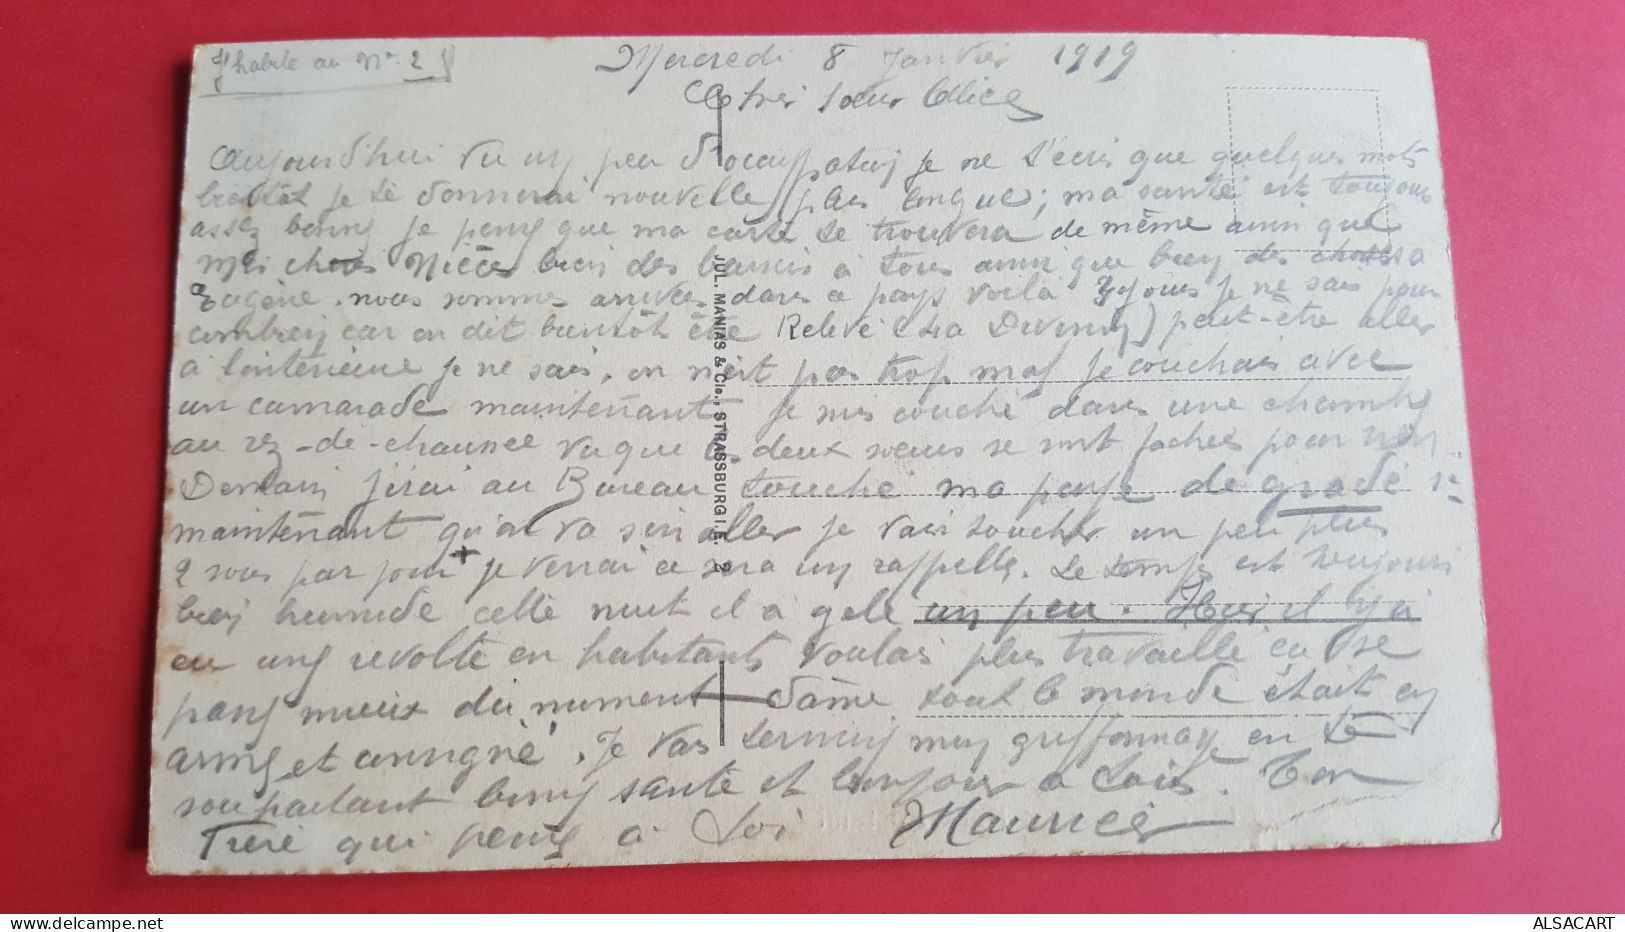 J'habite au N° 2
Mercredi 8 Janvier 1919
soeur Alice
Aujourd'hui vu un peu d'ocupation je ne t'écris que quelques mots
bientôt je te donnerai nouvelle plus longue; ma santé est toujours
assez bonne je pense que ma carte te trouvera de même ainsi que
mes chères Nièces bien des baisers à tous ainsi que bien des choses a
Eugène. nous sommes arrivés dans ce pays voilà jours je ne sais pour
combien car on dit bientôt être Relevé (la Division) peut-être aller
a l'intérieur je ne sais, on n'est pas trop mal je couchais avec
un camarade maintenant je me couche dans une chambre
au rez-de-chaussée vu que les deux soeurs se sont fachées pour
Demain j'irai au Bureau touché ma paye de gradé
maintenant qu'on va s'en aller je vais toucher un peu plus
2 sous par jour + je verrai ce sera un rappelle. Le temps est toujours
bien humide cette nuit il a gelé un peu. Hier il y a
eu une revolte en habitants voulais plus travaillé
pense mieux du moment tout le monde était en
arme et consigné. Je vas terminé mon griffonnage en te
souhaitant bonne santé et bonjour a Tous. Ton
Frère qui pense a Toi Maurice
JUL. MANIAS & Cie., STRASSBURG I. E. 2
ALSACART